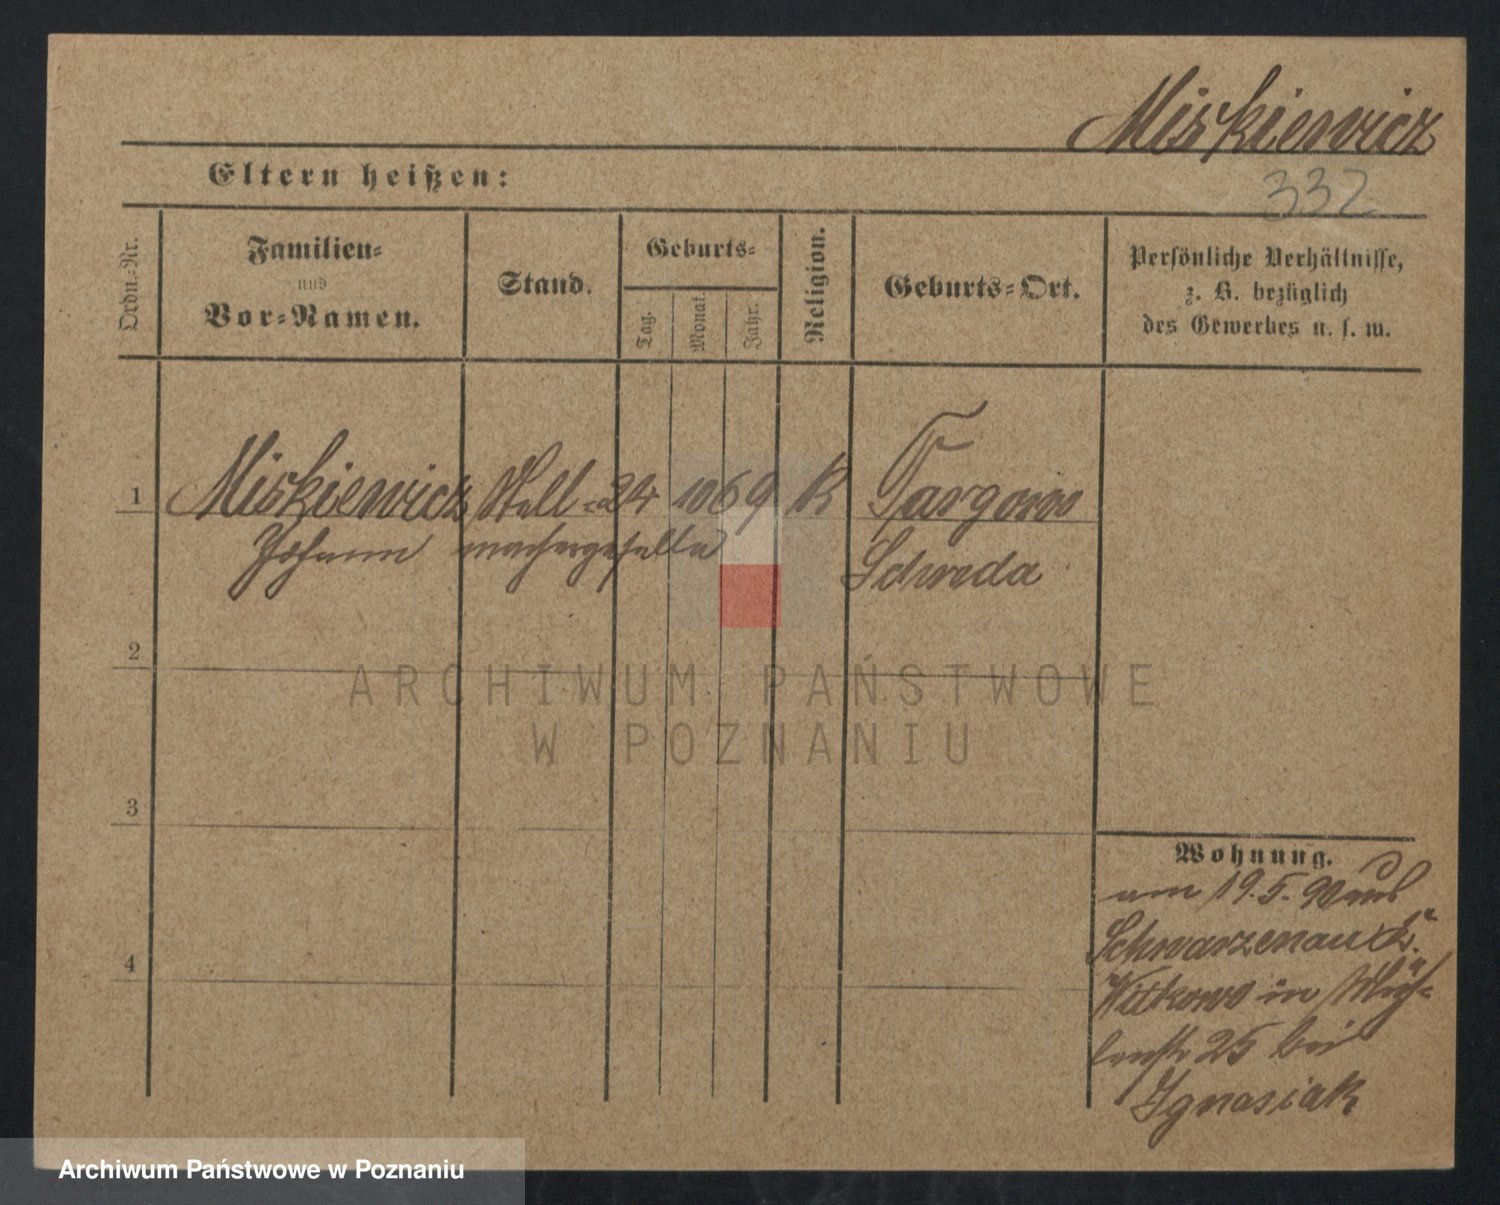 Miskiewicz
332
Eltern heißen:
Ordn.-Nr.
Familien-
und
Vor-Namen.
Stand.
Geburts-
Tag.
Monat.
Jahr.
Religion.
Geburts-Ort.
Persönliche Verhältnisse,
z. B. bezüglich
des Gewerbes u. s. w.
1 Miskiewicz Stell- 24 10 69 K Targowo
Johann machergeselle Schroda
2
3
4
Wohnung.
am 19.5.90 aus
Schwarzenau K.
Witkowo in Müh-
lenstr 25 bei
Ignasiak
ARCHIWUM PAŃSTWOWE
W POZNANIU
Archiwum Państwowe w Poznaniu